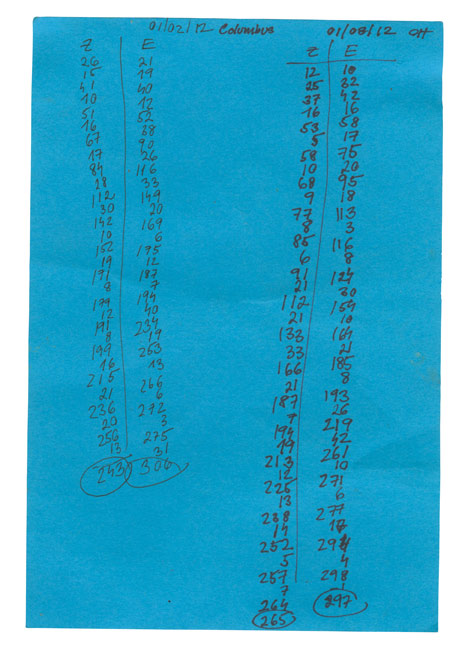 01/02/12 Columbus
Z E
26 21
15 19
41 40
10 12
51 52
16 38
67 90
17 26
84 116
28 33
112 149
30 20
142 169
10 6
152 175
19 12
171 187
8 7
179 194
12 40
191 234
8 19
199 253
16 13
215 266
21 6
236 272
20 3
256 275
13 31
243 306
01/08/12 OH
Z E
12 10
25 32
37 42
16 16
53 58
5 17
58 75
10 20
68 95
9 18
77 113
8 3
85 116
6 8
91 124
21 30
112 154
21 10
133 164
33 21
166 185
21 8
187 193
7 26
194 219
19 42
213 261
12 10
225 271
13 6
238 277
14 17
252 294
5 4
257 298
7 1
264 297
265